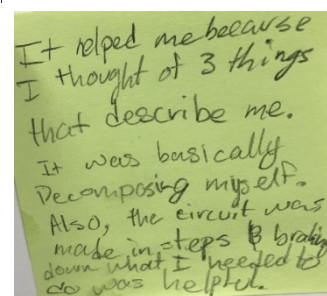 It helped me because
I thought of 3 things
that describe me.
It was basically
Decomposing myself.
Also, the circuit was
made in steps & braking
down what I needed to
do was helpful.